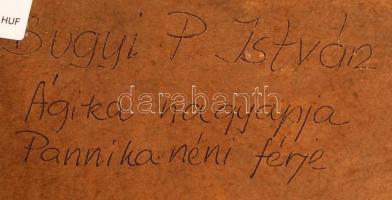 HUF
Bugyi P István
Ágika nagyapja
Pannika néni férje
darabanth